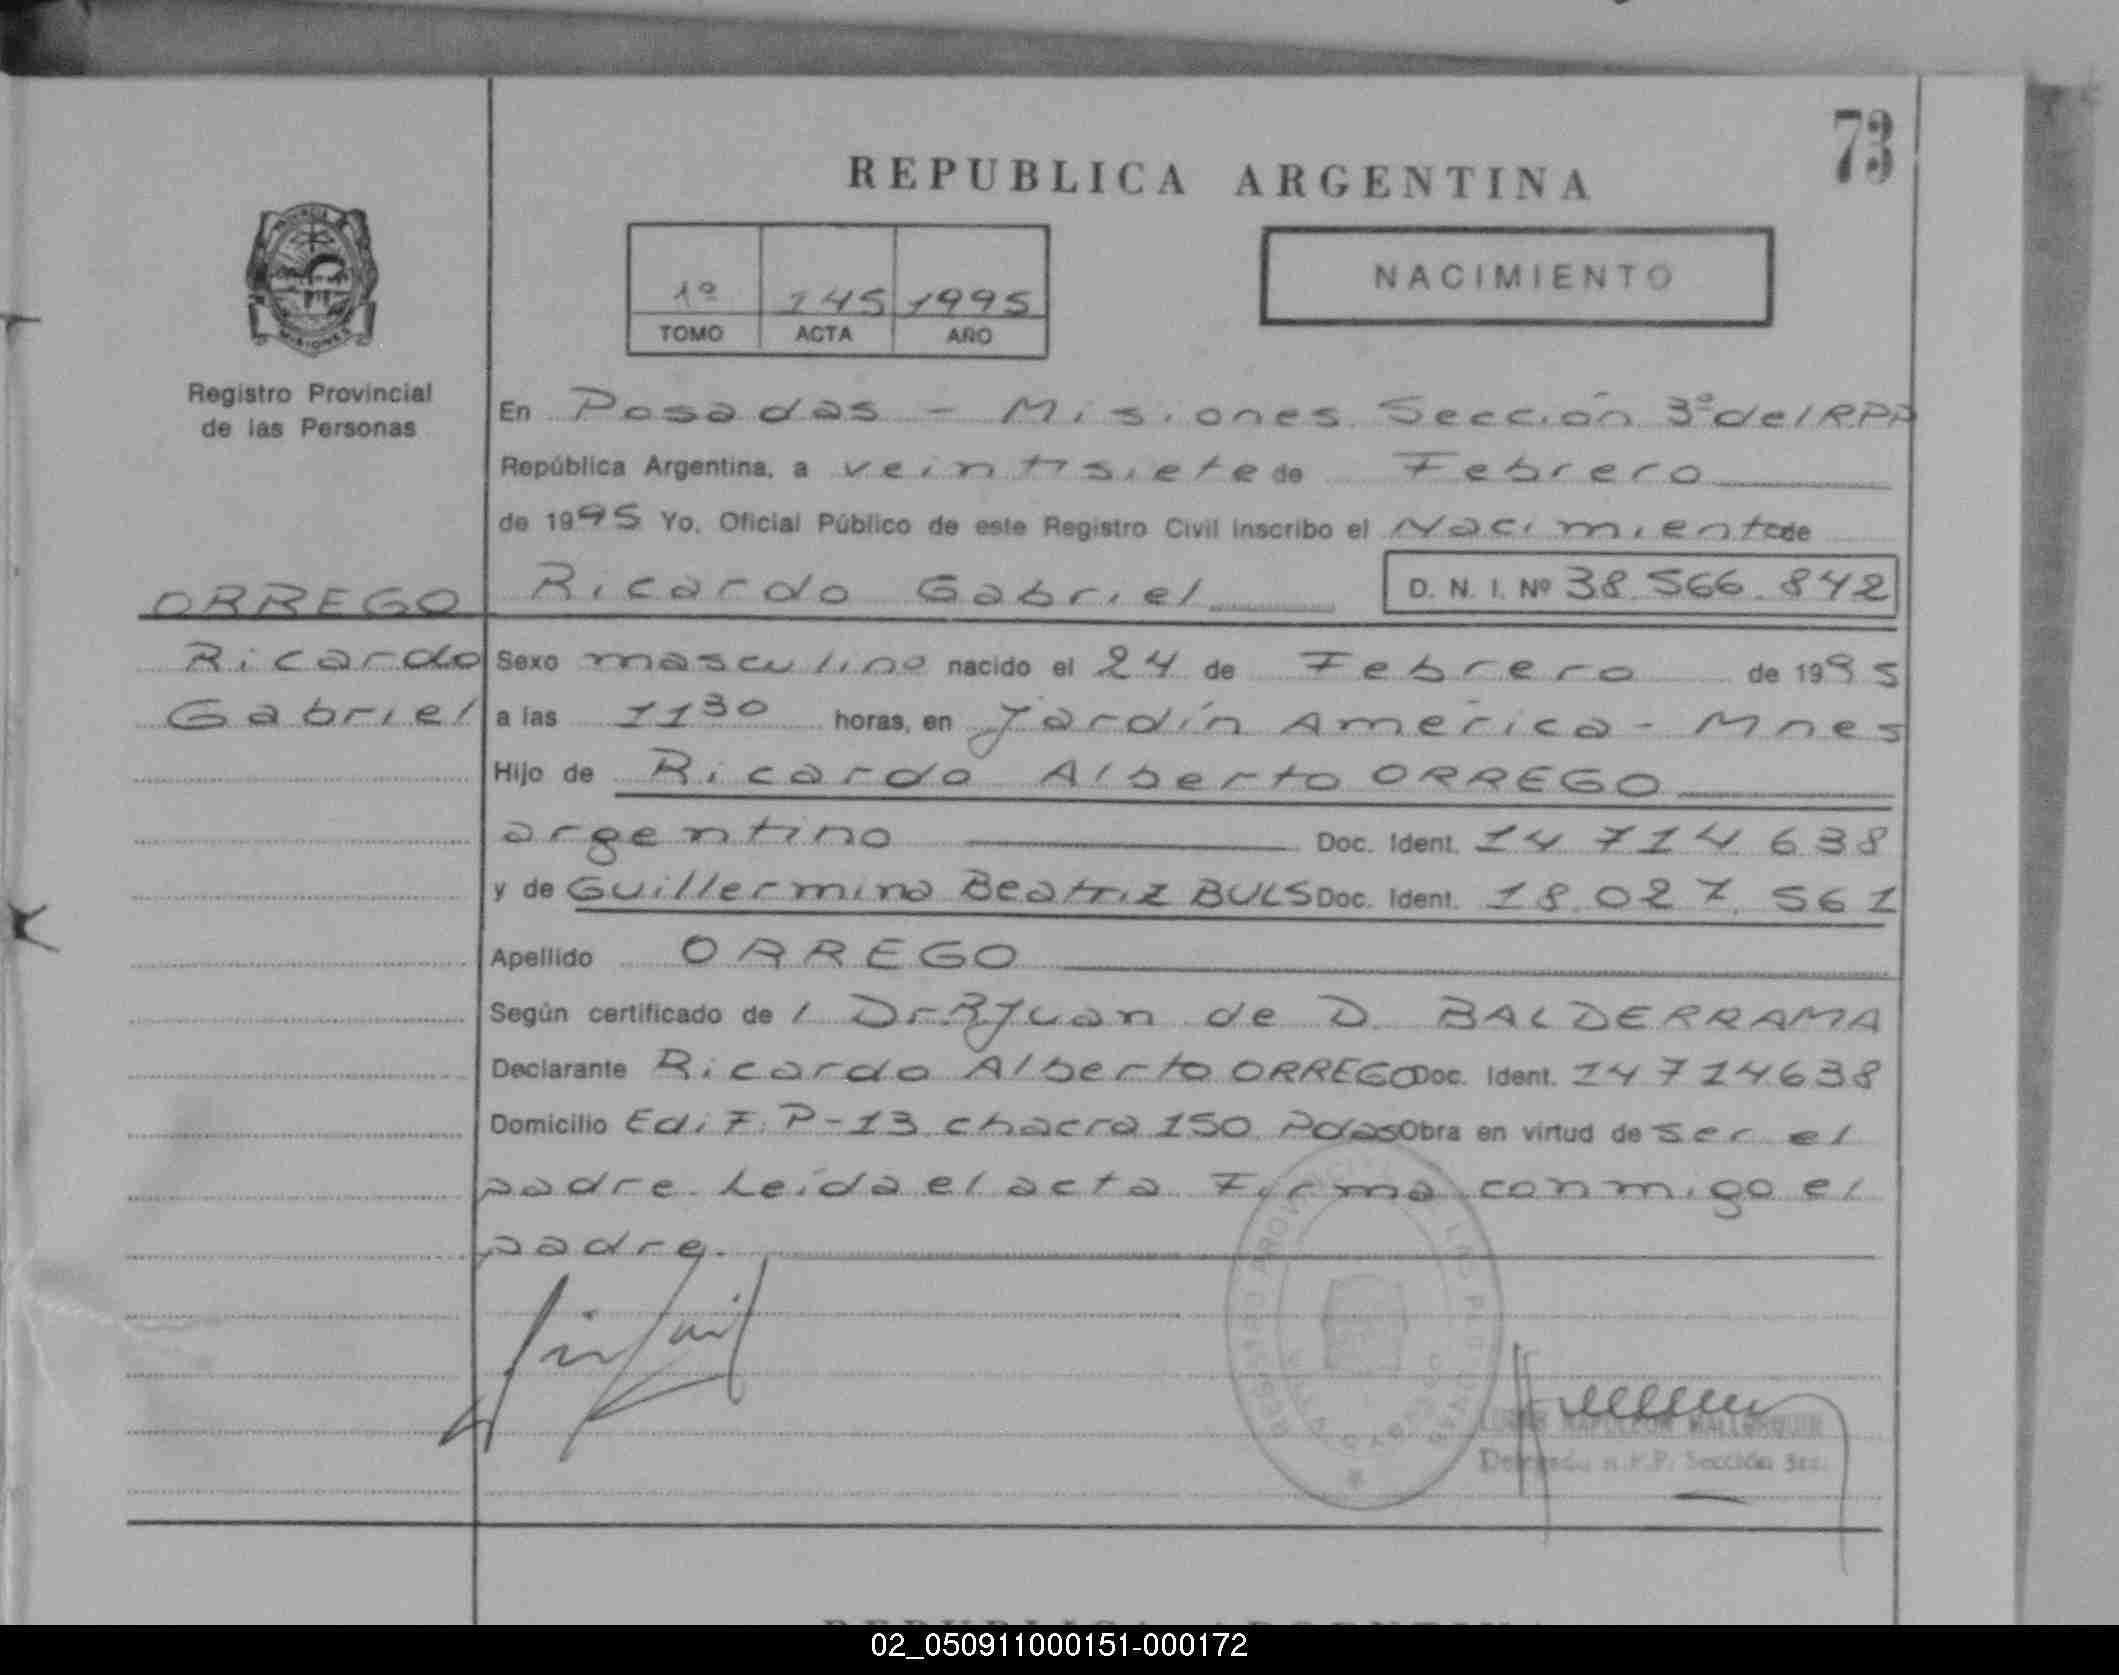 73
REPUBLICA ARGENTINA
1º 145 1995
TOMO ACTA AÑO
NACIMIENTO
PROVINCIA
MISIONES
Registro Provincial
de las Personas
En Posadas - Misiones Sección 3ª del RPP
República Argentina, a veintisiete de Febrero
de 1995 Yo, Oficial Público de este Registro Civil inscribo el Nacimiento de
Ricardo Gabriel D. N. I. Nº 38.566.842
ORREGO
Ricardo
Gabriel
Sexo masculino nacido el 24 de Febrero de 1995
a las 11 30 horas, en Jardín América - Mnes
Hijo de Ricardo Alberto ORREGO
argentino Doc. Ident. 14 714 638
y de Guillermina Beatriz BULS Doc. Ident. 18.027.561
Apellido ORREGO
Según certificado de l Dr. Juan de D. BALDERRAMA
Declarante Ricardo Alberto ORREGO Doc. Ident. 14714638
Domicilio Edif. P-13 chacra 150 Pdas Obra en virtud de ser el
padre. Leída el acta Firma conmigo el
padre.
REGISTRO PROVINCIAL DE LAS PERSONAS
NAPOLEON
Delegado R.P.P. Sección 3ra.
02_050911000151-000172